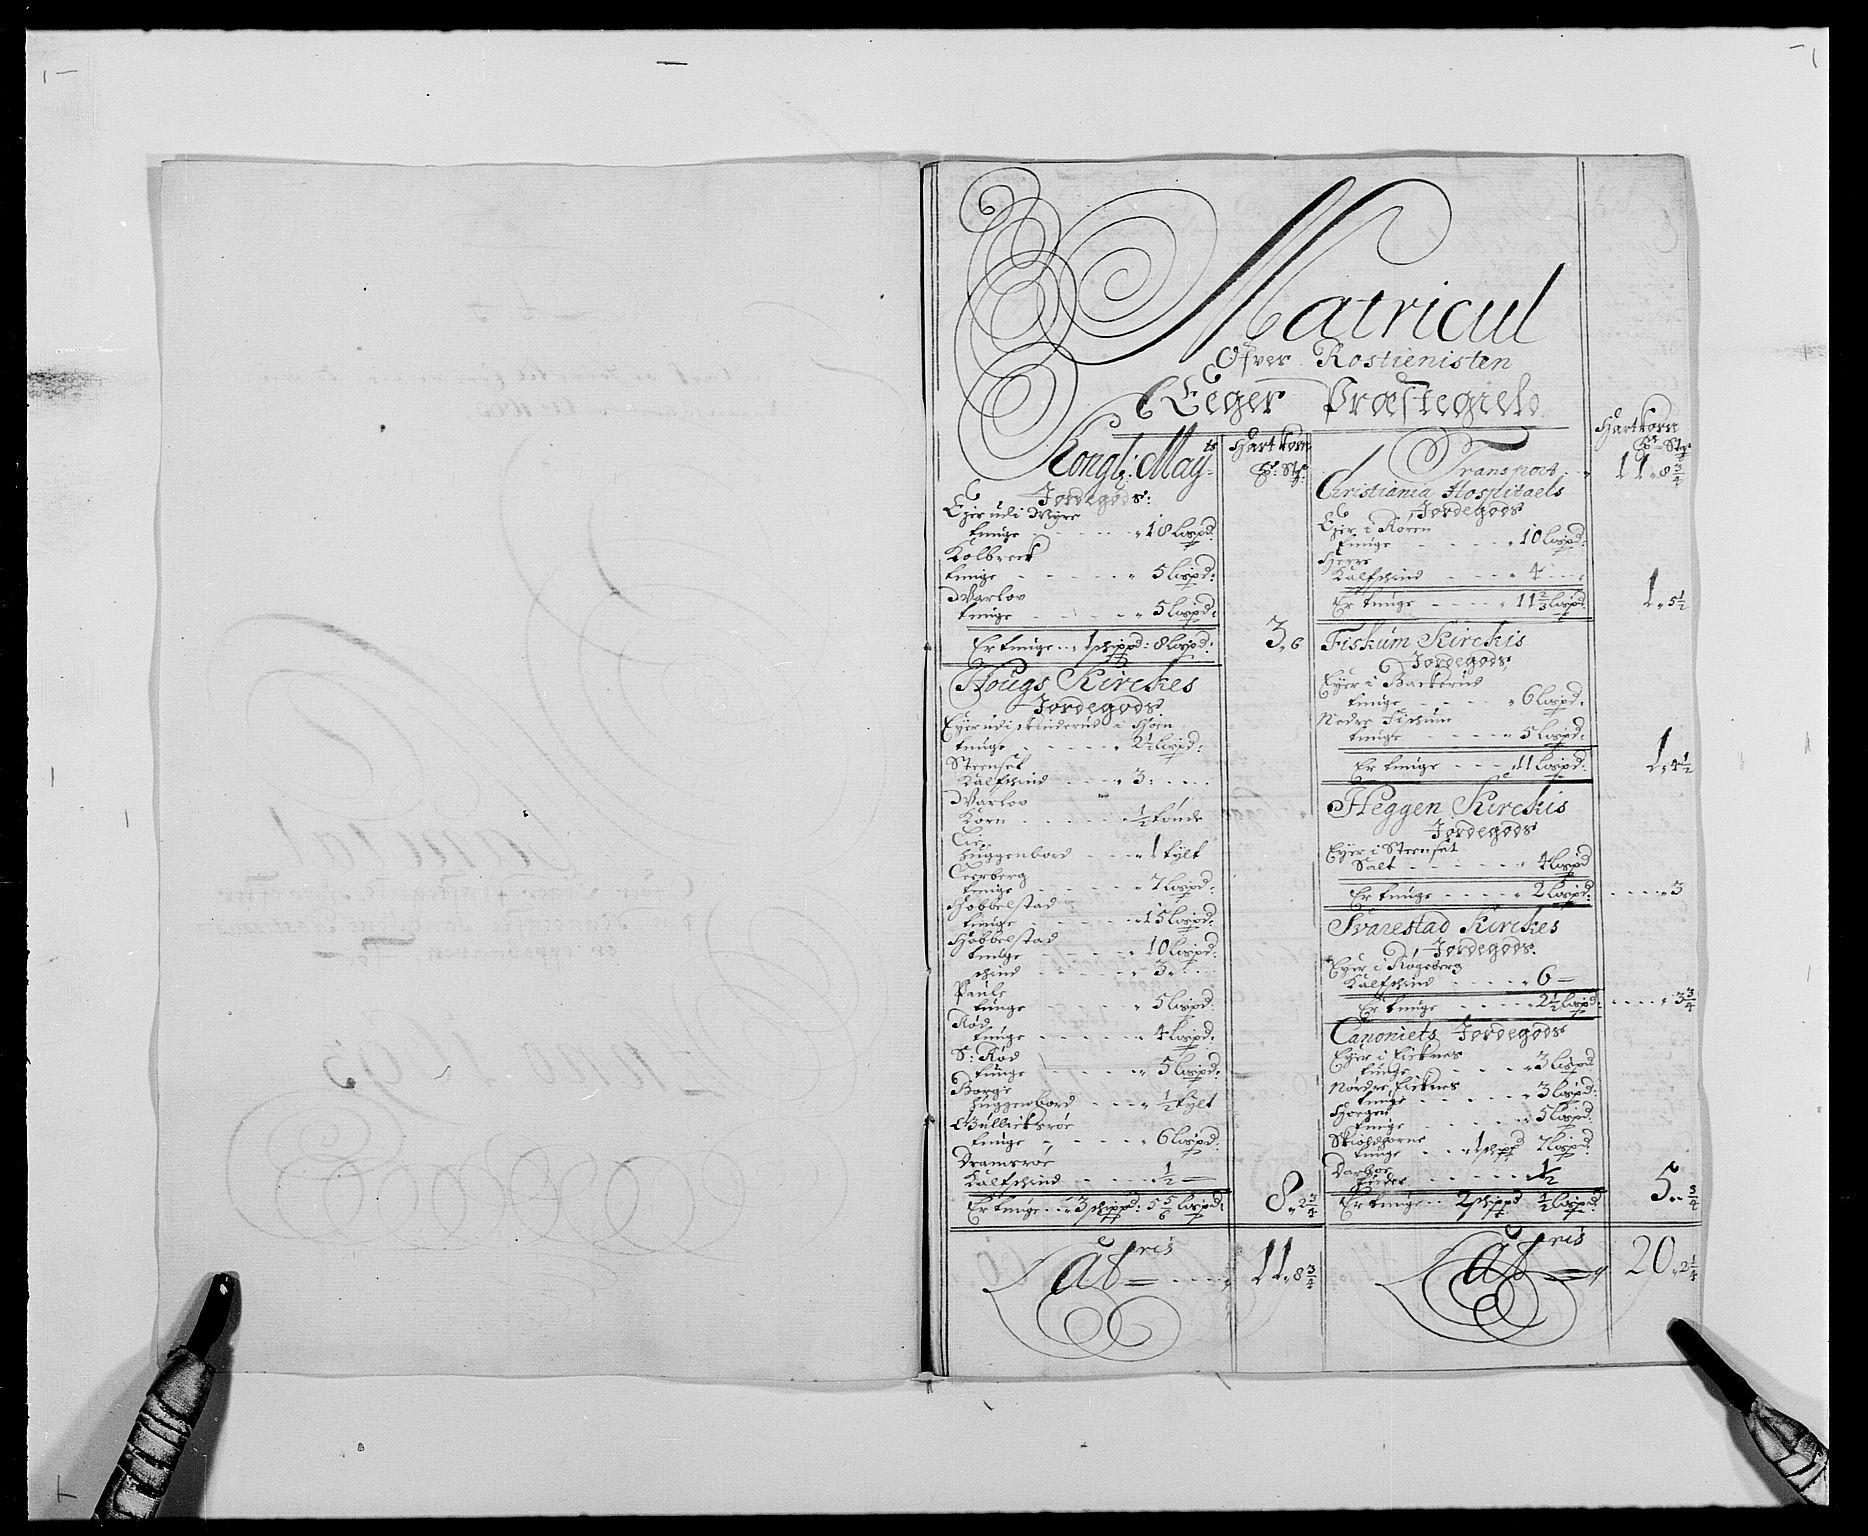 Matricul
Ofver Rostienisten
Eeger Præstegield
Kongl: May ts
Jordegods:
Hartkorn
Ejer udi Myre
tunge - - - - - „ 18 lispd:
Kolbreck
tunge - - - - - „ 5 lispd:
Varlov
tunge - - - - - „ 5 lispd:
Er tunge . . „ 1 schippd: 8 lispd: 3 „ 6
Hougs Kirckes
Jordegods
Ejer udi i Hoen
tunge - - - - - „ 2½ lispd:
Steenset
Kalfschind - - - - „ 3: - - -
Varlov
Korn - - - - - ½ tønde
huggenbord - - - „ 1 tylt
Teerberg
tunge - - - - - „ 7 lispd:
Hobbelstad
tunge - - - - - „ 15 lispd:
Hobbelstad
tunge - - - - - „ 10 lispd:
schind - - - - - „ 3 - - -
Pauls
tunge - - - - - „ 5 lispd:
Rød
tunge - - - - - „ 4 lispd:
S: Rød
tunge - - - - - „ 5 lispd:
Borge
huggenbord - - - „ ½ tylt
Gullichsrøe
tunge - - - - - „ 6 lispd:
Dramsrøe
Kalfschind - - - - ½ —
Er tunge . . „ 3 schippd: 5 5/6 lispd: 8 „ 2¾
Lat ris = - - - - 11 „ 8¾
Hartkorn
Transport - „ 11 „ 8¾
Christiania Hospitaels
Jordegods
Ejer i Koren
tunge - - - - - „ 10 lispd:
Herre
Kalfschind - - - - „ 4 - - -
Er tunge - - - - „ 11⅔ lispd: 1 „ 5½
Fiskum Kirckis
Jordegods
Ejer i Backerud
tunge - - - - - „ 6 lispd:
Nedre Fiskum
tunge - - - - - „ 5 lispd:
Er tunge - - - „ 11 lispd: 1 „ 4½
Heggen Kirckis
Jordegods
Ejer i Steenset
Salt - - - - - „ 4 lispd
Er tunge - - - - „ 2 lispd: - - - - „ 3
Svarestad Kirckes
Jordegods.
Ejer i Røgeberg
Kalfschind - - - - „ 6 —
Er tunge - - - - „ 2½ lispd: - - - - „ 3¾
Canoniets Jordegods
Ejer i Ficknes
tunge - - - - - „ 3 lispd
Nordre Ficknes
tunge - - - - - „ 3 lispd:
Horgen
tunge - - - - - „ 5 lispd:
Skioldhorne
tunge - - - „ 1 schipp 7 lispd:
Darboe
huder - - - - - ½
Er tunge . . 2 schippd ½ lispd 5 „ ¾
Lat ris = „ 20 „ 2¼